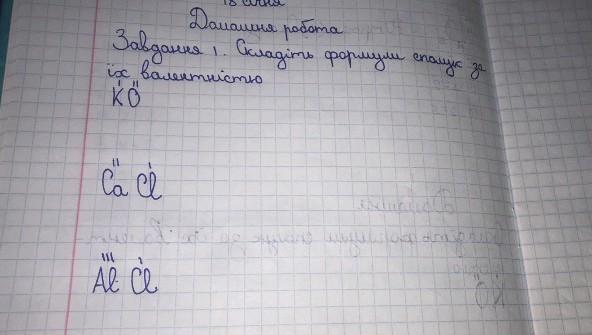 18 січня
Домашня робота
Завдання 1. Складіть формули сполук за
їх валентністю
I II
K O
II I
Ca Cl
III I
Al Cl